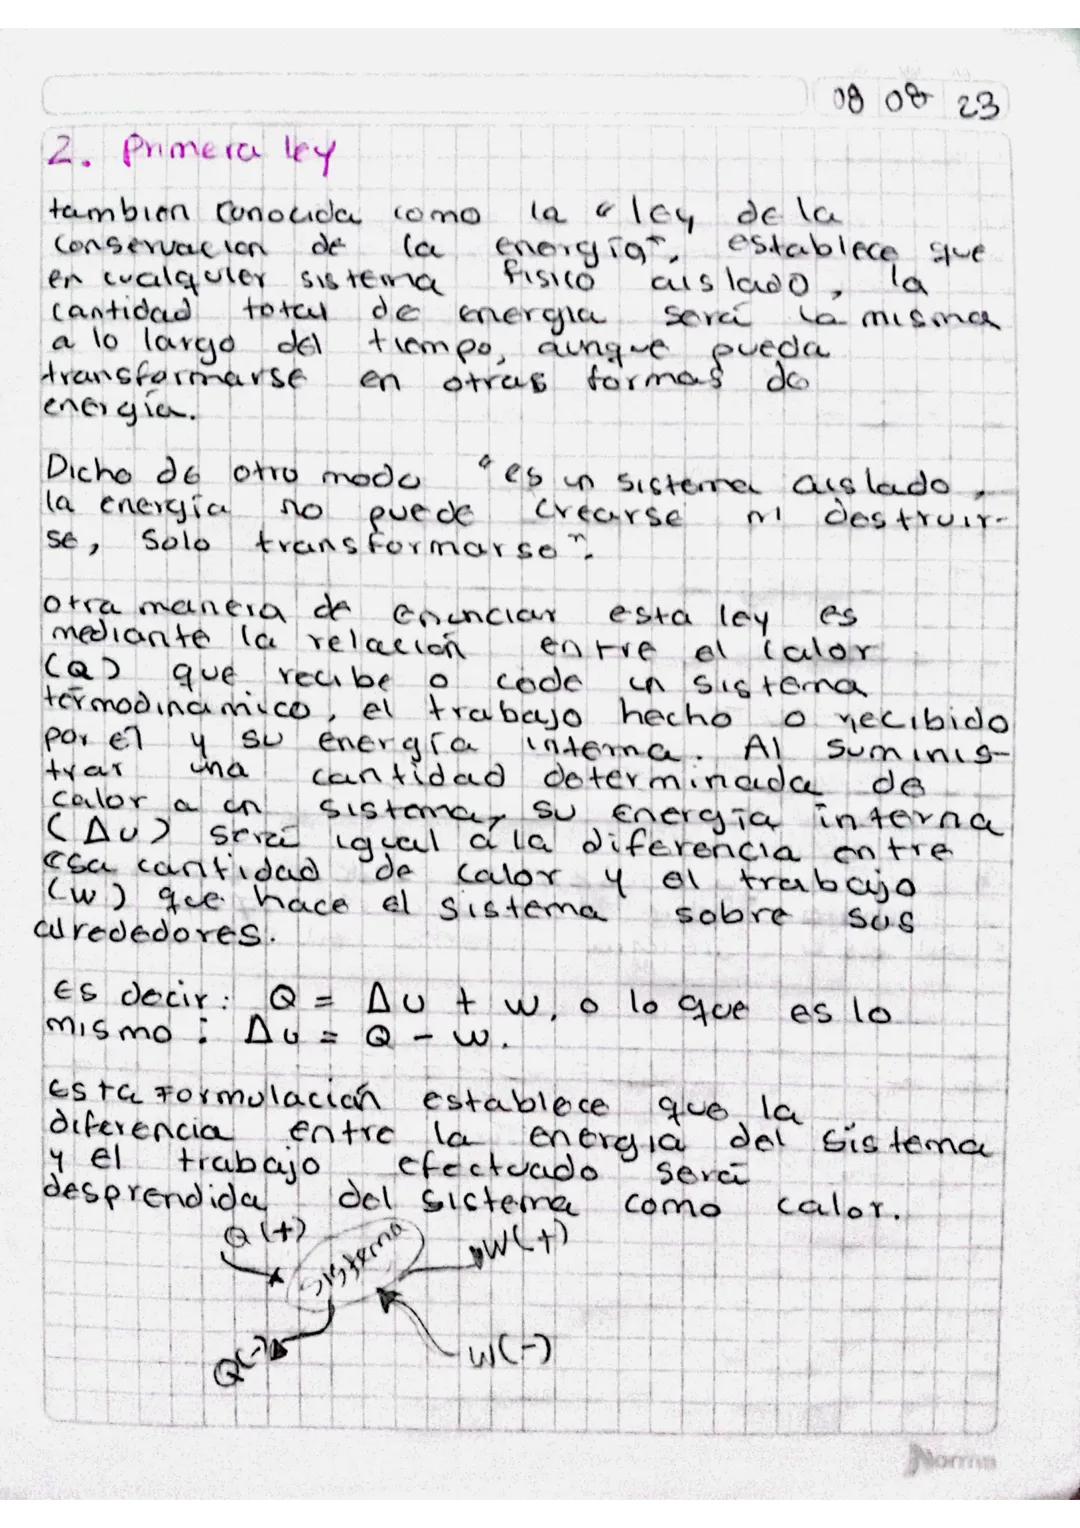 08 08 23
2. Primera ley
tambien conocida como la "ley de la
conservacion de la energía", establece que
en cualquier sistema fisico aislado, la
cantidad total de energia será la misma
a lo largo del tiempo, aunque pueda
transformarse en otras formas de
energía.
Dicho de otro modo "es un sistema aislado,
la energía no puede crearse ni destruir-
se, Solo transformarse".
otra manera de enunciar esta ley es
mediante la relación entre el calor
(Q) que recibe o cede un sistema
termodinamico, el trabajo hecho o recibido
por el y su energía interna. Al suminis-
trar una cantidad determinada de
calor a un sistema, su energía interna
(ΔU) será igual a la diferencia entre
esa cantidad de calor y el trabajo
(W) que hace el sistema sobre sus
alrededores.
Es decir: Q = ΔU + W, o lo que es lo
mismo: ΔU = Q - W.
Esta Formulación establece que la
diferencia entre la energia del sistema
y el trabajo efectuado será
desprendida del sistema como calor.
Q (+) Sistema W(+)
Q(-) W(-)
Norma